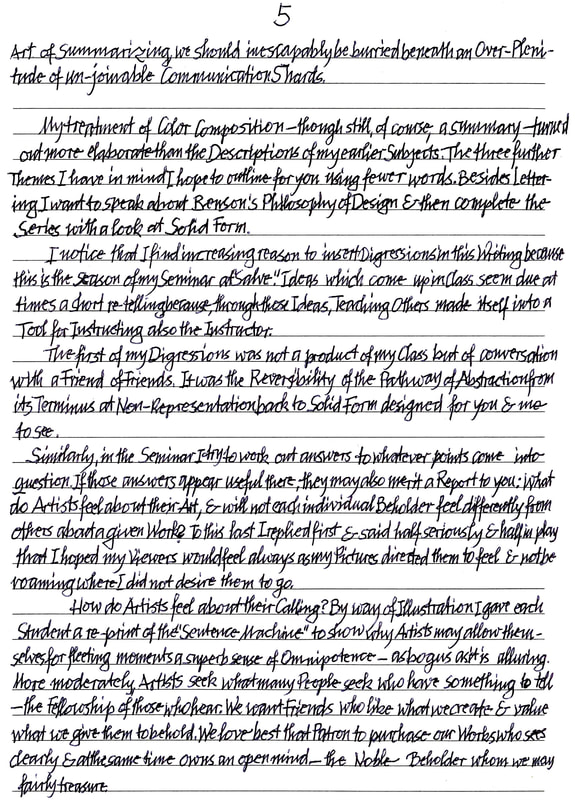 5
Art of Summarizing, we should inescapably be burried beneath an Over-Pleni-
tude of un-joinable Communication Shards.
My treatment of Color Composition – though still, of course, a summary – turned
out more elaborate than the Descriptions of my earlier Subjects. The three further
Themes I have in mind I hope to outline for you using fewer words. Besides Letter-
ing I want to speak about Benson's Philosophy of Design & then complete the
Series with a look at Solid Form.
I notice that I find increasing reason to insert Digressions in this Writing because
this is the season of my Seminar at Salve." Ideas which come up in Class seem due at
times a short re-telling because, through those Ideas, Teaching Others made itself into a
Tool for Instructing also the Instructor.
The first of my Digressions was not a product of my Class but of conversation
with a Friend of Friends. It was the Reversibility of the Pathway of Abstraction from
its Terminus at Non-Representation back to Solid Form designed for you & me
to see.
Similarly, in the Seminar I try to work out answers to whatever points come into
question. If those answers appear useful there, they may also merit a Report to you: What
do Artists feel about their Art, & will not each individual Beholder feel differently from
others about a given Work? To this last I replied first & said half seriously & half in play
that I hoped my Viewers would feel always as my Pictures directed them to feel & not be
roaming where I did not desire them to go.
How do Artists feel about their Calling? By way of Illustration I gave each
Student a re-print of the "Sentence Machine" to show why Artists may allow them-
selves for fleeting moments a superb sense of Omnipotence – as bogus as it is alluring.
More moderately, Artists seek what many People seek who have something to tell
– the Fellowship of those who hear. We want Friends who like what we create & value
what we give them to behold. We love best that Patron to purchase our Works who sees
clearly & at the same time owns an open mind – the Noble Beholder whom we may
fairly treasure